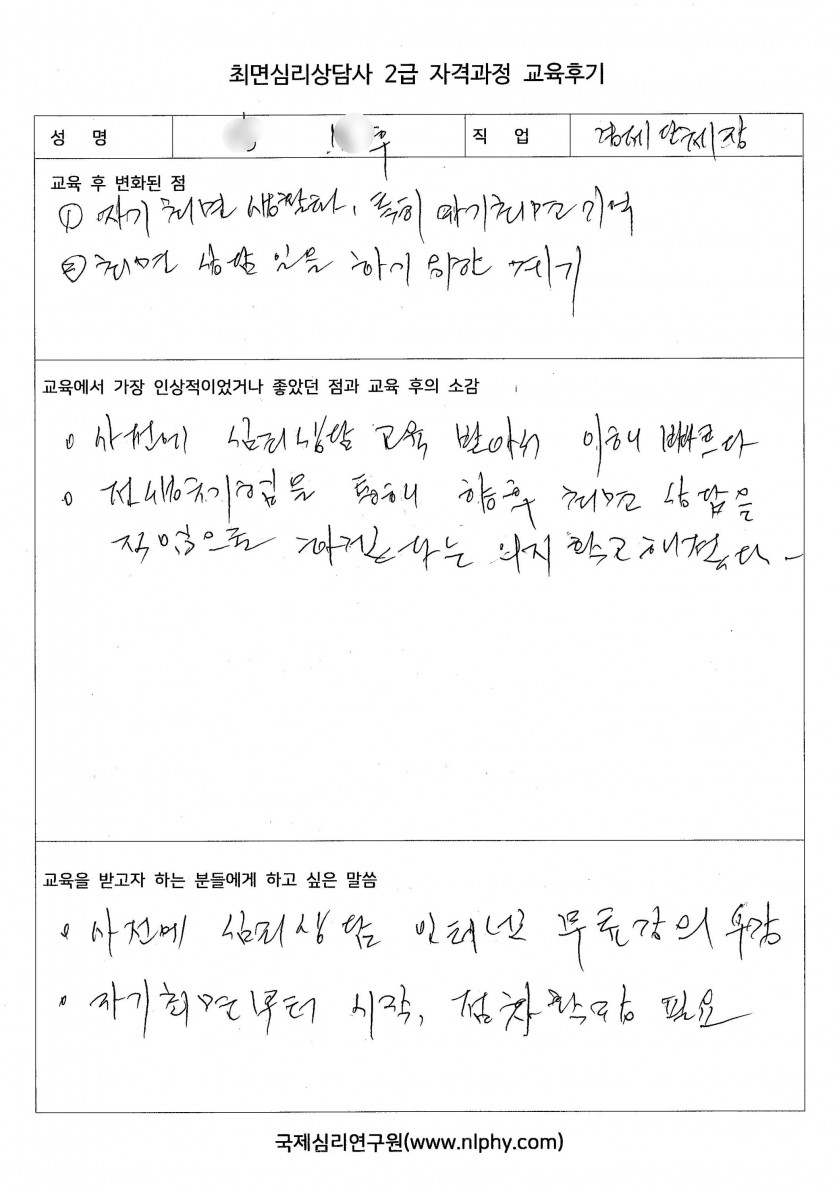 최면심리상담사 2급 자격과정 교육후기
성 명 후 직 업 경제단체장
교육 후 변화된 점
① 자기 최면 생활화, 특히 자기최면 기억
② 최면 상담 일을 하기 위한 계기
교육에서 가장 인상적이었거나 좋았던 점과 교육 후의 소감
○ 사전에 심리상담 교육 받아서 이해 빠르다
○ 전생체험을 통해 향후 최면 상담을
직업으로 하겠다는 의지 확고해졌다.
교육을 받고자 하는 분들에게 하고 싶은 말씀
○ 사전에 심리상담 인터넷 무료강의 수강
○ 자기최면부터 시작, 점차 확답 필요
국제심리연구원(www.nlphy.com)